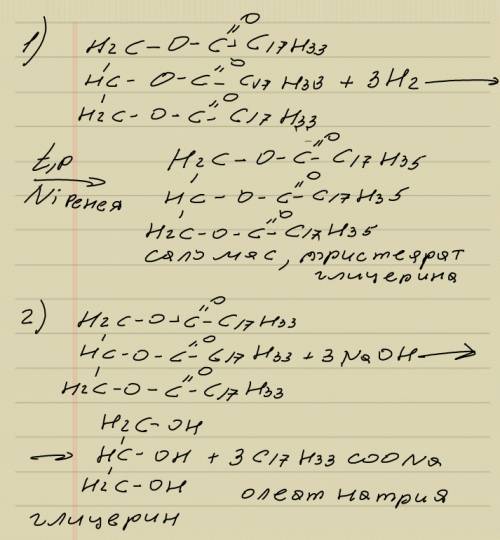 1)
H2C - O - C =O - C17H33
HC - O - C =O - C17H33 + 3H2 ⟶
H2C - O - C =O - C17H33
t,p
Ni Ренея
H2C - O - C =O - C17H35
HC - O - C =O - C17H35
H2C - O - C =O - C17H35
саломас, тристеарат
глицерина
2)
H2C - O - C =O - C17H33
HC - O - C =O - C17H33 + 3NaOH ⟶
H2C - O - C =O - C17H33
H2C - OH
⟶ HC - OH + 3C17H33COONa
H2C - OH олеат натрия
глицерин